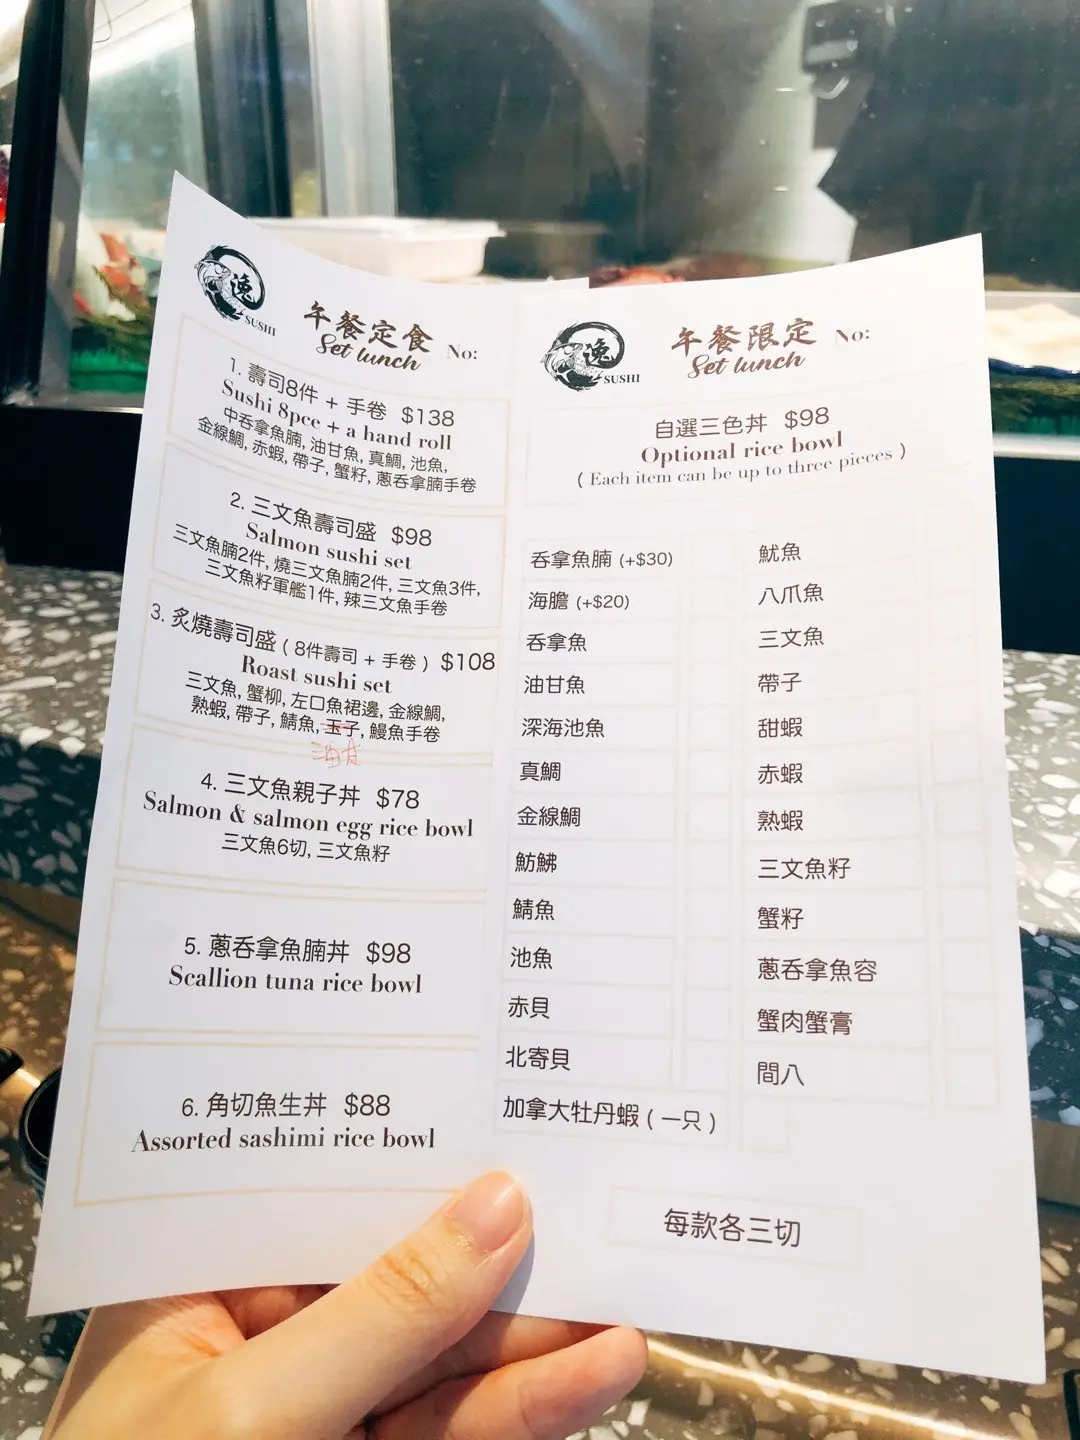 逸
SUSHI
午餐定食
Set lunch
No:
1. 壽司8件 + 手卷 $138
Sushi 8pce + a hand roll
中吞拿魚腩, 油甘魚, 真鯛, 池魚,
金線鯛, 赤蝦, 帶子, 蟹籽, 蔥吞拿腩手卷
2. 三文魚壽司盛 $98
Salmon sushi set
三文魚腩2件, 燒三文魚腩2件, 三文魚3件,
三文魚籽軍艦1件, 辣三文魚手卷
3. 炙燒壽司盛 ( 8件壽司 + 手卷 ) $108
Roast sushi set
三文魚, 蟹柳, 左口魚裙邊, 金線鯛,
熟蝦, 帶子, 鯖魚, 玉子, 鰻魚手卷
油甘
4. 三文魚親子丼 $78
Salmon & salmon egg rice bowl
三文魚6切, 三文魚籽
5. 蔥吞拿魚腩丼 $98
Scallion tuna rice bowl
6. 角切魚生丼 $88
Assorted sashimi rice bowl
逸
SUSHI
午餐限定
Set lunch
No:
自選三色丼 $98
Optional rice bowl
( Each item can be up to three pieces )
吞拿魚腩 (+$30)
海膽 (+$20)
吞拿魚
油甘魚
深海池魚
真鯛
金線鯛
魴鮄
鯖魚
池魚
赤貝
北寄貝
加拿大牡丹蝦 ( 一只 )
魷魚
八爪魚
三文魚
帶子
甜蝦
赤蝦
熟蝦
三文魚籽
蟹籽
蔥吞拿魚容
蟹肉蟹膏
間八
每款各三切